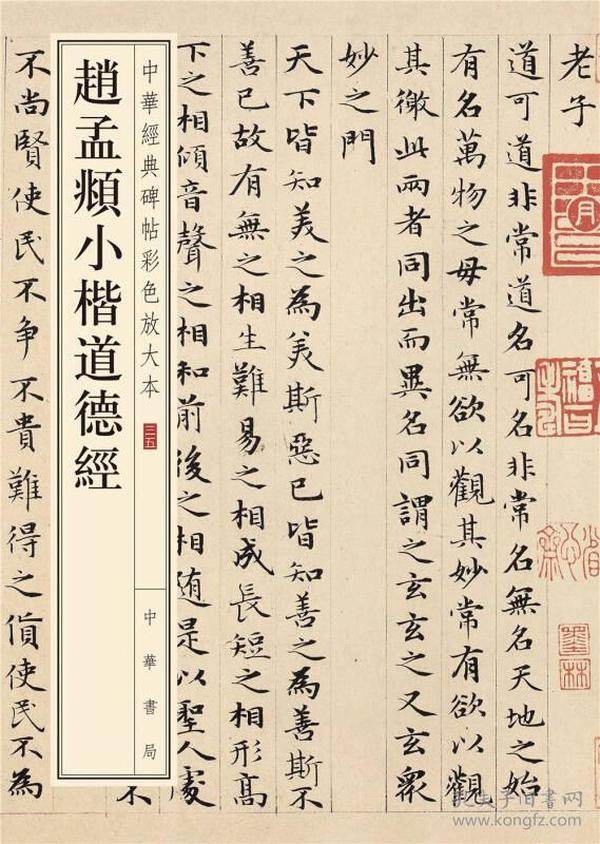 老子
道可道非常道名可名非常名無名天地之始
有名萬物之母常無欲以觀其妙常有欲以觀
其徼此兩者同出而異名同謂之玄玄之又玄眾
妙之門
天下皆知美之為美斯惡已皆知善之為善斯不
善已故有無之相生難易之相成長短之相形高
下之相傾音聲之相和前後之相随是以聖人處
中華經典碑帖彩色放大本 三五
中華書局
趙孟頫小楷道德經
不尚賢使民不争不貴難得之貨使民不為
墨林
孔夫子旧书网
www.kongfz.com